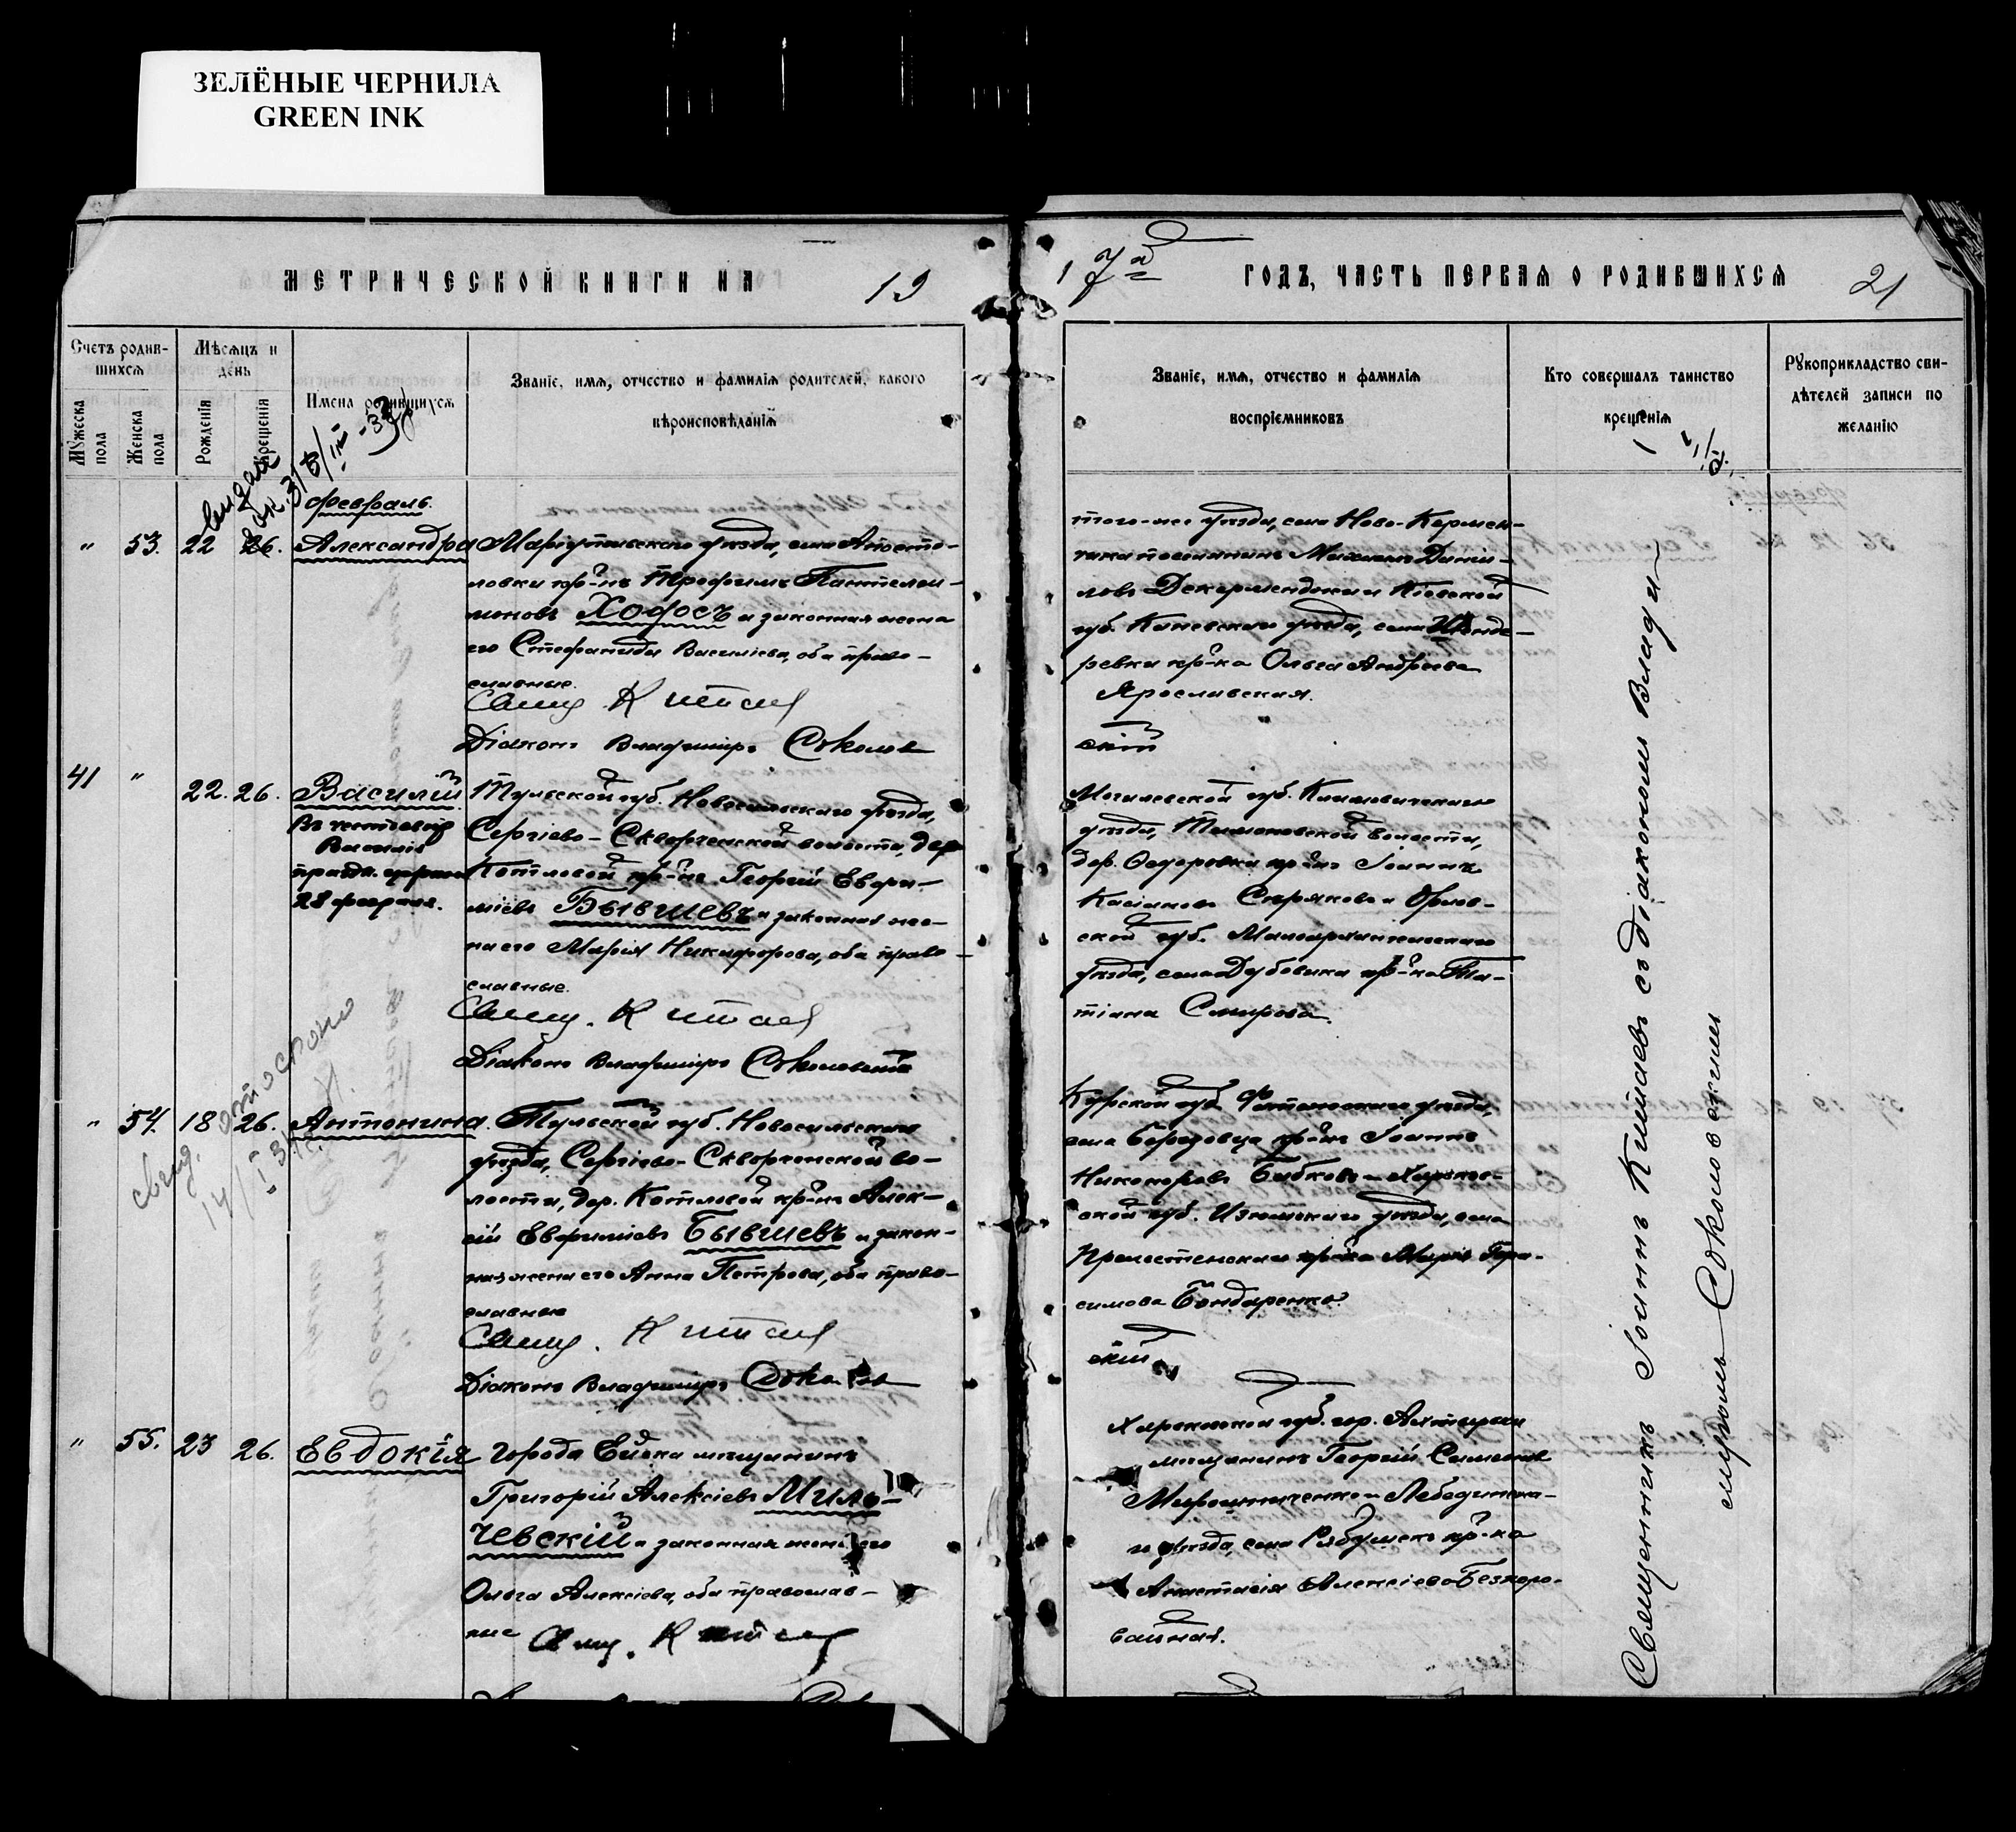 ЗЕЛЁНЫЕ ЧЕРНИЛА
GREEN INK
МЕТРИЧЕСКОЙ КНИГИ НА 19
17й ГОДЪ, ЧАСТЬ ПЕРВАЯ О РОДИВШИХСЯ 21
Счетъ родив-
шихся
Мужеска пола
Женска пола
Мѣсяцъ и
день
Рожденія
Крещенія
Имена родившихся
Званіе, имя, отчество и фамилія родителей, какого
вѣроисповѣданія
Званіе, имя, отчество и фамилія
воспріемниковъ
Кто совершалъ таинство
крещенія
Рукоприкладство сви-
дѣтелей записи по
желанію
февраль.
" 53. 22 26. Александра
Маріупольскаго уѣзда, села Апосто-
ловки кр-нъ Трофимъ Пантелеи-
моновъ Ходосъ и законная жена
его Стефанида Василіева, оба право-
славные.
Свящ. Китаев
Діаконъ Владиміръ Соколов
того-же уѣзда, села Ново-Кармен-
Михаилъ Дани-
ловъ и Кіевской
губ. Каневскаго уѣзда, села
ревки кр-ка Ольга Андреева
Ярославская.
скій
41 " 22. 26. Василій
Въ честь
Василія
28 февраля.
Тульской губ. Новосильскаго уѣзда,
Сергіево-Скворченской волости, дер.
Котловой кр-нъ Георгій Евфи-
міевъ Бывшевъ и законная же-
на его Марія Никифорова, оба право-
славные.
Свящ. Китаев
Діаконъ Владиміръ Соколовскій
Могилевской губ. Климовичскаго
уѣзда, волости,
дер. Федоровки кр-нъ Іоаннъ
Касіановъ и Орлов-
ской губ. Малоархангельскаго
уѣзда, села Дубовика кр-ка Та-
тіана
" 54. 18 26. Антонина.
Тульской губ. Новосильскаго
уѣзда, Сергіево-Скворченской во-
лости, дер. Котловой кр-нъ Алек-
сій Евфиміевъ Бывшевъ и закон-
ная жена его Анна Петрова, оба право-
славные
Свящ. Китаев
Діаконъ Владиміръ Соколов
Курской губ. Фатежскаго уѣзда,
села Березовца кр-нъ Іоаннъ
Никоноровъ Бибковъ и Харьков-
ской губ. Изюмскаго уѣзда, села
кр-ка Марія Гера-
симова Бондаренко.
скій
" 55. 23 26. Евдокія
Города Ейска мѣщанинъ
Григорій Алексіевъ Мило-
чевскій и законная жена его
Ольга Алексіева, оба православ-
ные
Свящ. Китаев
Харьковской губ. гор. Ахтырки
мѣщанинъ Георгій
Мирошниченко и Лебединска-
го уѣзда, села Рябушекъ кр-ка
Анастасія Алексіева Безкоро-
вайная.
Священникъ Іоаннъ Китаевъ съ діакономъ Влади-
міромъ Соколовскимъ